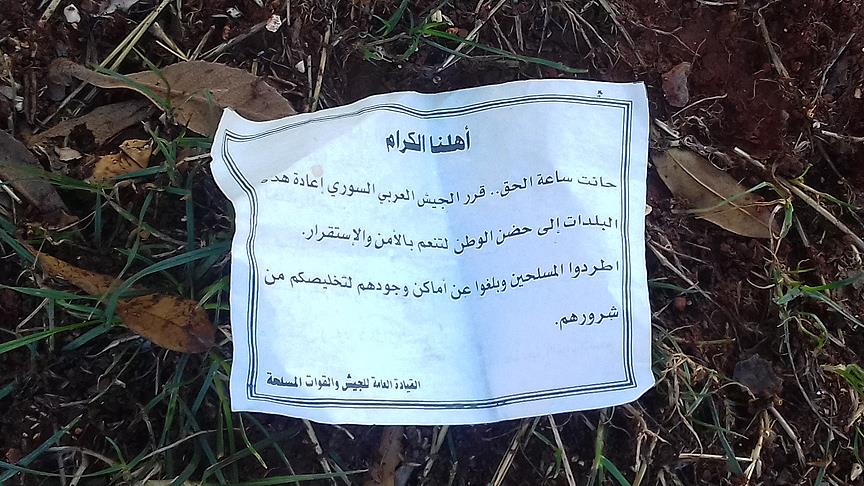 أهلنا الكرام
حانت ساعة الحق.. قرر الجيش العربي السوري إعادة هذه
البلدات إلى حضن الوطن لتنعم بالأمن والإستقرار.
اطردوا المسلحين وبلغوا عن أماكن وجودهم لتخليصكم من
شرورهم.
القيادة العامة للجيش والقوات المسلحة